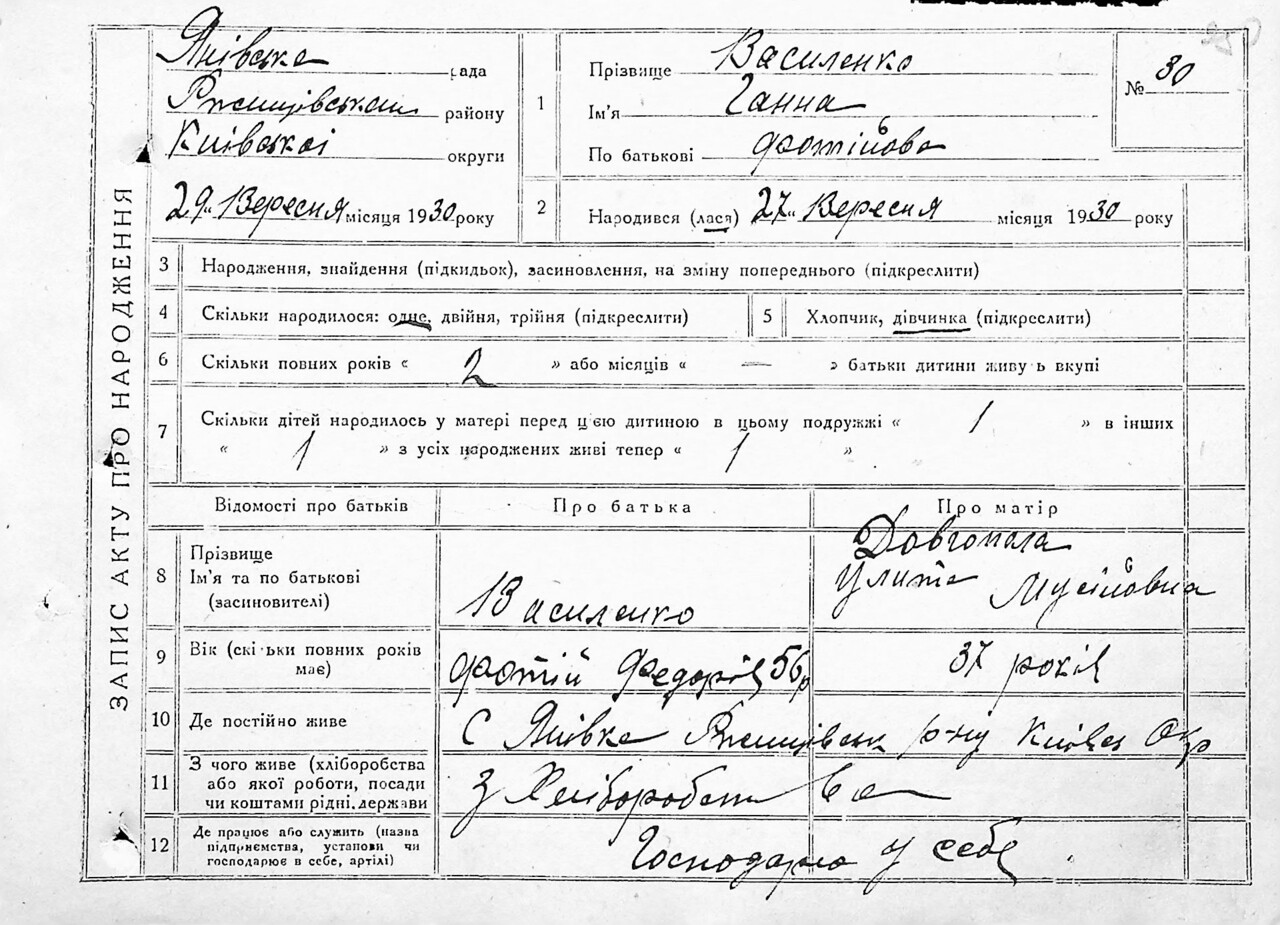 ЗАПИС АКТУ ПРО НАРОДЖЕННЯ
Янівська рада
Ржищівськ району
Київської округи
29 Вересня місяця 1930 року
1 Прізвище Василенко
Ім'я Ганна
По батькові Фотійова
№ 30
2 Народився (лася) 27 Вересня місяця 1930 року
3 Народження, знайдення (підкидьок), засиновлення, на зміну попереднього (підкреслити)
4 Скільки народилося: одне, двійня, трійня (підкреслити)
5 Хлопчик, дівчинка (підкреслити)
6 Скільки повних років « 2 » або місяців « — » батьки дитини живу ь вкупі
7 Скільки дітей народилось у матері перед цією дитиною в цьому подружжі « 1 » в інших
« 1 » з усіх народжених живі тепер « 1 »
Відомості про батьків Про батька Про матір
8 Прізвище
Ім'я та по батькові
(засиновителі)
Василенко
Довгопола
Улита Мусійовна
9 Вік (скільки повних років
має)
Фотій Федорів 56 р
37 років
10 Де постійно живе С Янівка Ржищівськ р-ну Київсь Окр
11 З чого живе (хліборобства
або якої роботи, посади
чи коштами рідні, держави
З Хліборобства
12 Де працює або служить (назва
підприємства, установи чи
господарює в себе, артілі)
Господарю у себе